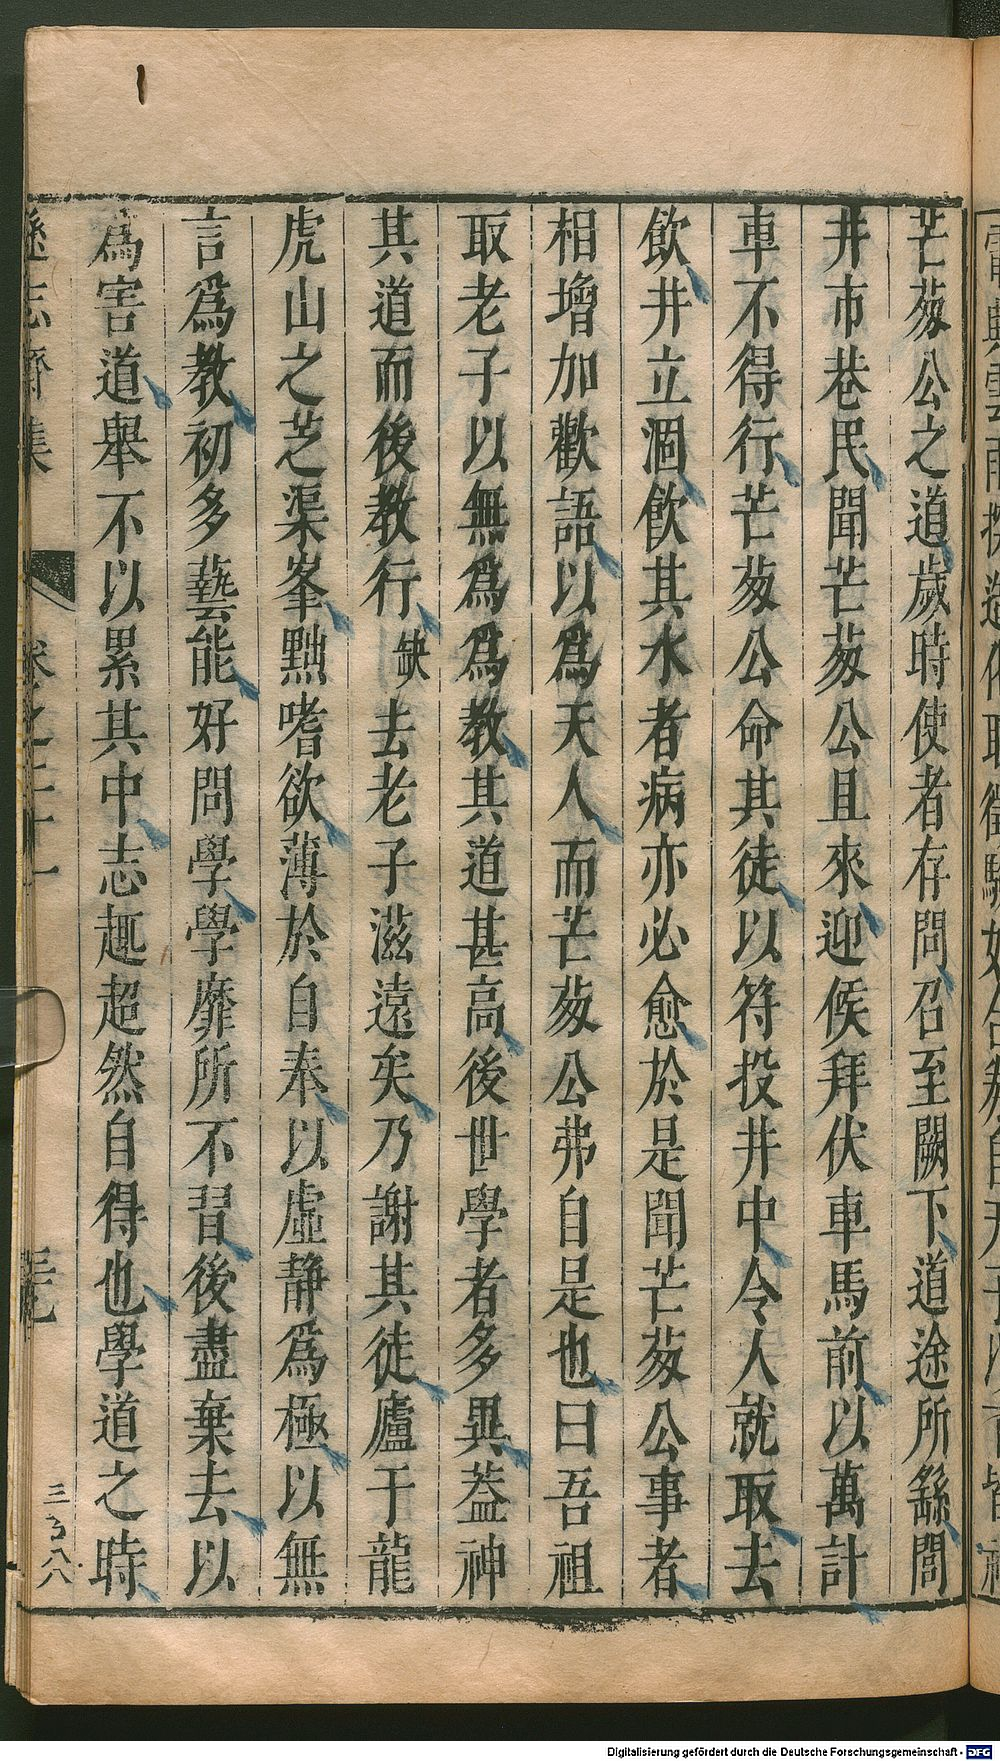 芒芴公之道歲時使者存問召至闕下道途所繇閭
井市巷民聞芒芴公且來迎候拜伏車馬前以萬計
車不得行芒芴公命其徒以符投井中令人就取去
飲井立涸飲其水者病亦必愈於是聞芒芴公事者
相增加歡語以爲天人而芒芴公弗自是也曰吾祖
取老子以無爲爲教其道甚高後世學者多異葢神
其道而後教行缺去老子滋遠矣乃謝其徒廬于龍
虎山之芝渠峯黜嗜欲薄於自奉以虛靜爲極以無
言爲教初多藝能好問學學靡所不習後盡棄去以
爲害道舉不以累其中志趣超然自得也學道之時
遜志齋集
卷之二十一
三八
Digitalisierung gefördert durch die Deutsche Forschungsgemeinschaft - DFG